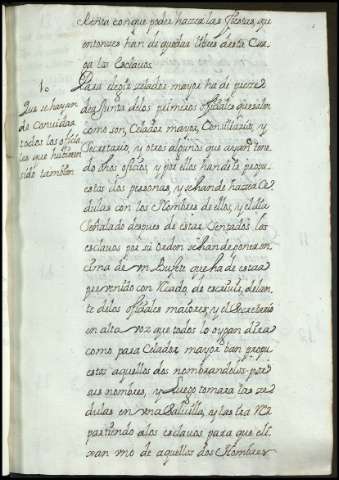 Renta con que poder hazer las fiestas, que
entonces han de quedar libres desta Car
ga los Esclavos.
10
Que se hayan
de convidar
todos los oficia
les que hubieren
sido tambien
Para elegir celador mayor ha de
Junta de los primeros oficiales que
como son, Celador mayor, Consiliarios, y
Secretario, y otros algunos que ayan teni
do dhos oficios, y por ellos han de ser propu
estas dos personas, y se han de hazer Ce
dulas con los Nombres de ellos, y el dia
señalado despues de estar sentados los
esclavos por su orden se han de poner en
cima de un Bufete que ha de estar
prevenido con Recado, de escribir, delan
te delos oficiales maiores, y el Secretario
en alta voz que todos lo oygan dira
como para Celador mayor ban propu
estos aquellos dos nombrandolos por
sus nombres, y luego tomara las ce
dulas en una Salvilla, y las ira Re
partiendo alos esclavos para que eli
xan uno de aquellos dos Hombres